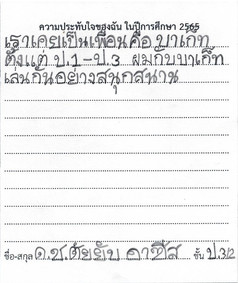 ความประทับใจของฉัน ในปีการศึกษา 2565
เราเคยเป็นเพื่อนคือ บาเกท
ตั้งแต่ ป.1-ป.3 ผมกับบาเก็ท
เล่นกันอย่างสนุกสนาน
ชื่อ-สกุล ด.ช. อาฑีส ชั้น ป.3/2